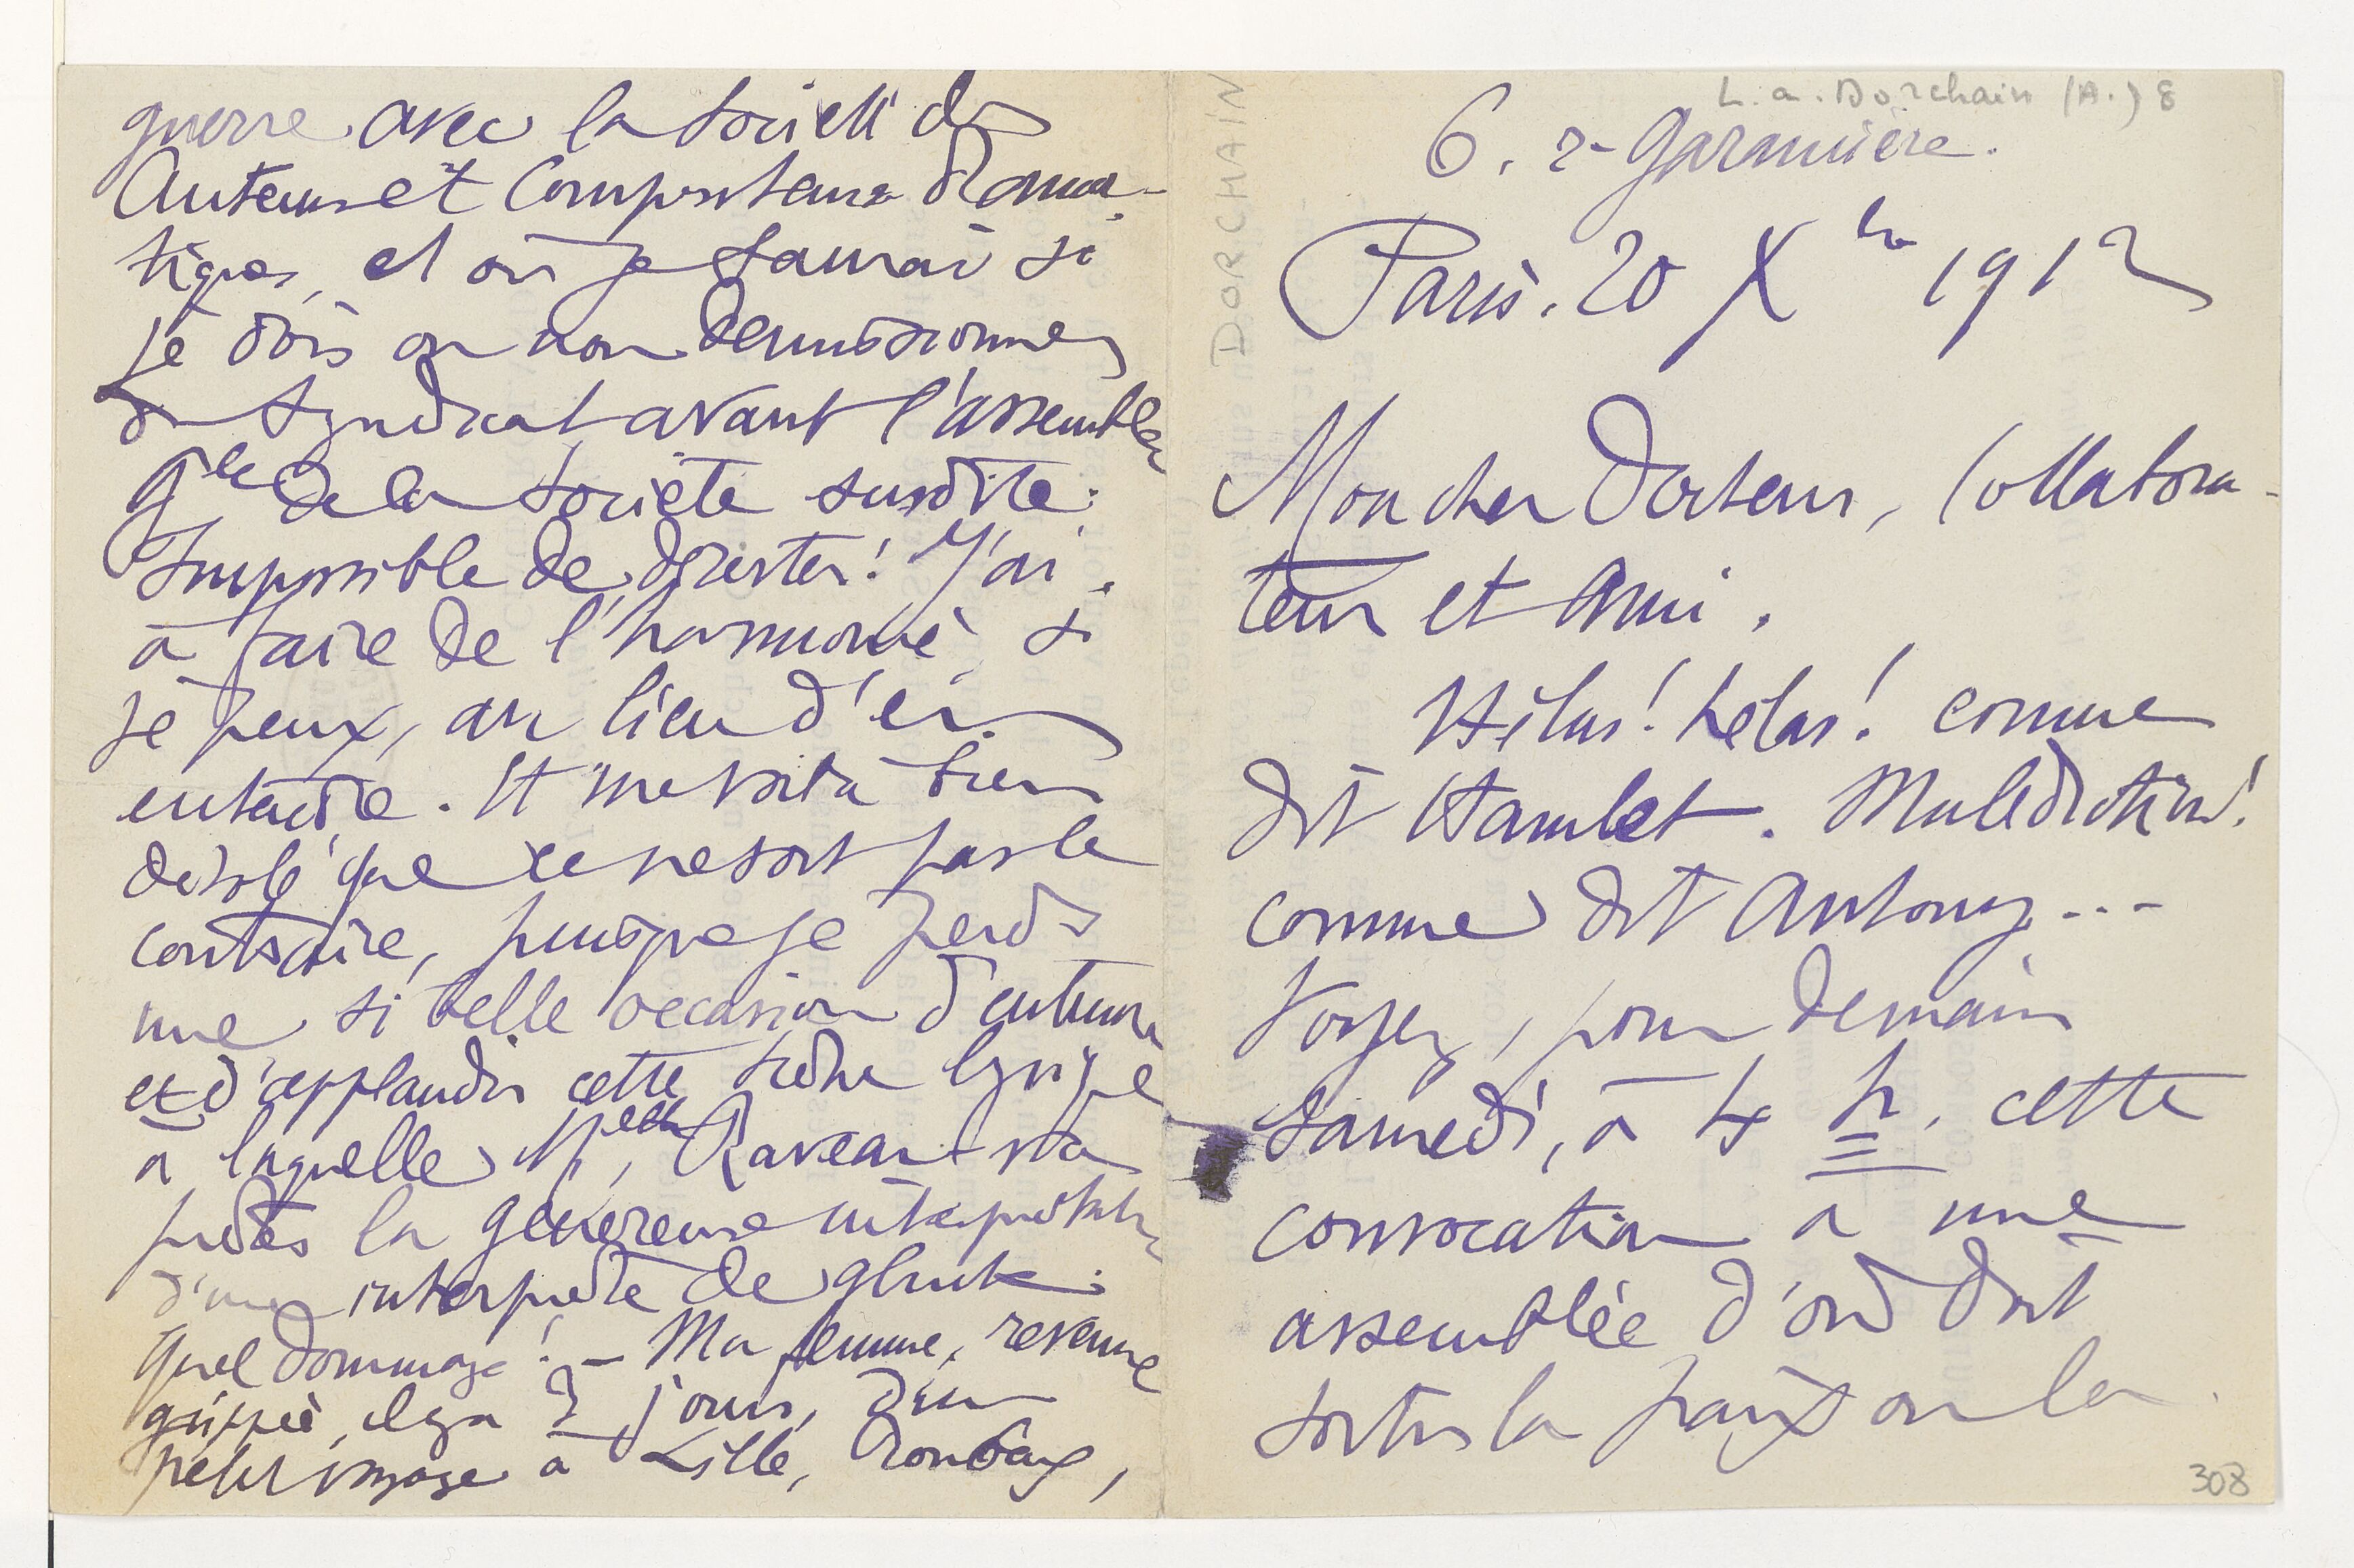 L. a. Dorchain (A.) 8
6. r. Garancière.
Paris. 20 Xbre 1912
DORCHAIN
Mon cher Docteur, Collabora-
teur et Ami.
Hélas! hélas! comme
dit Hamlet. Malédiction!
comme dit Antony...
Voyez, pour demain
samedi, à 4 h, cette
convocation à une
assemblée d'où doit
sortir la paix ou la
308
guerre avec la Société des
Auteurs et Compositeurs drama-
tiques, et où je saurai si
je dois ou non démissionner
du Syndicat avant l'assemblée
gle de la Société susdite.
Impossible de déserter! J'ai
à faire de l'harmonie, si
je peux, au lieu d'en
entendre. Et me voilà bien
désolé que ce ne soit pas le
contraire, puisque je perds
une si belle occasion d'entendre
et d'applaudir cette scène lyrique
à laquelle Melle Raveau va
prêter la généreuse interprétation
d'une interprète de Gluck.
Quel dommage! — Ma femme, revenue
grippée, il y a 3 jours, d'un
petit voyage à Lille, Roubaix,